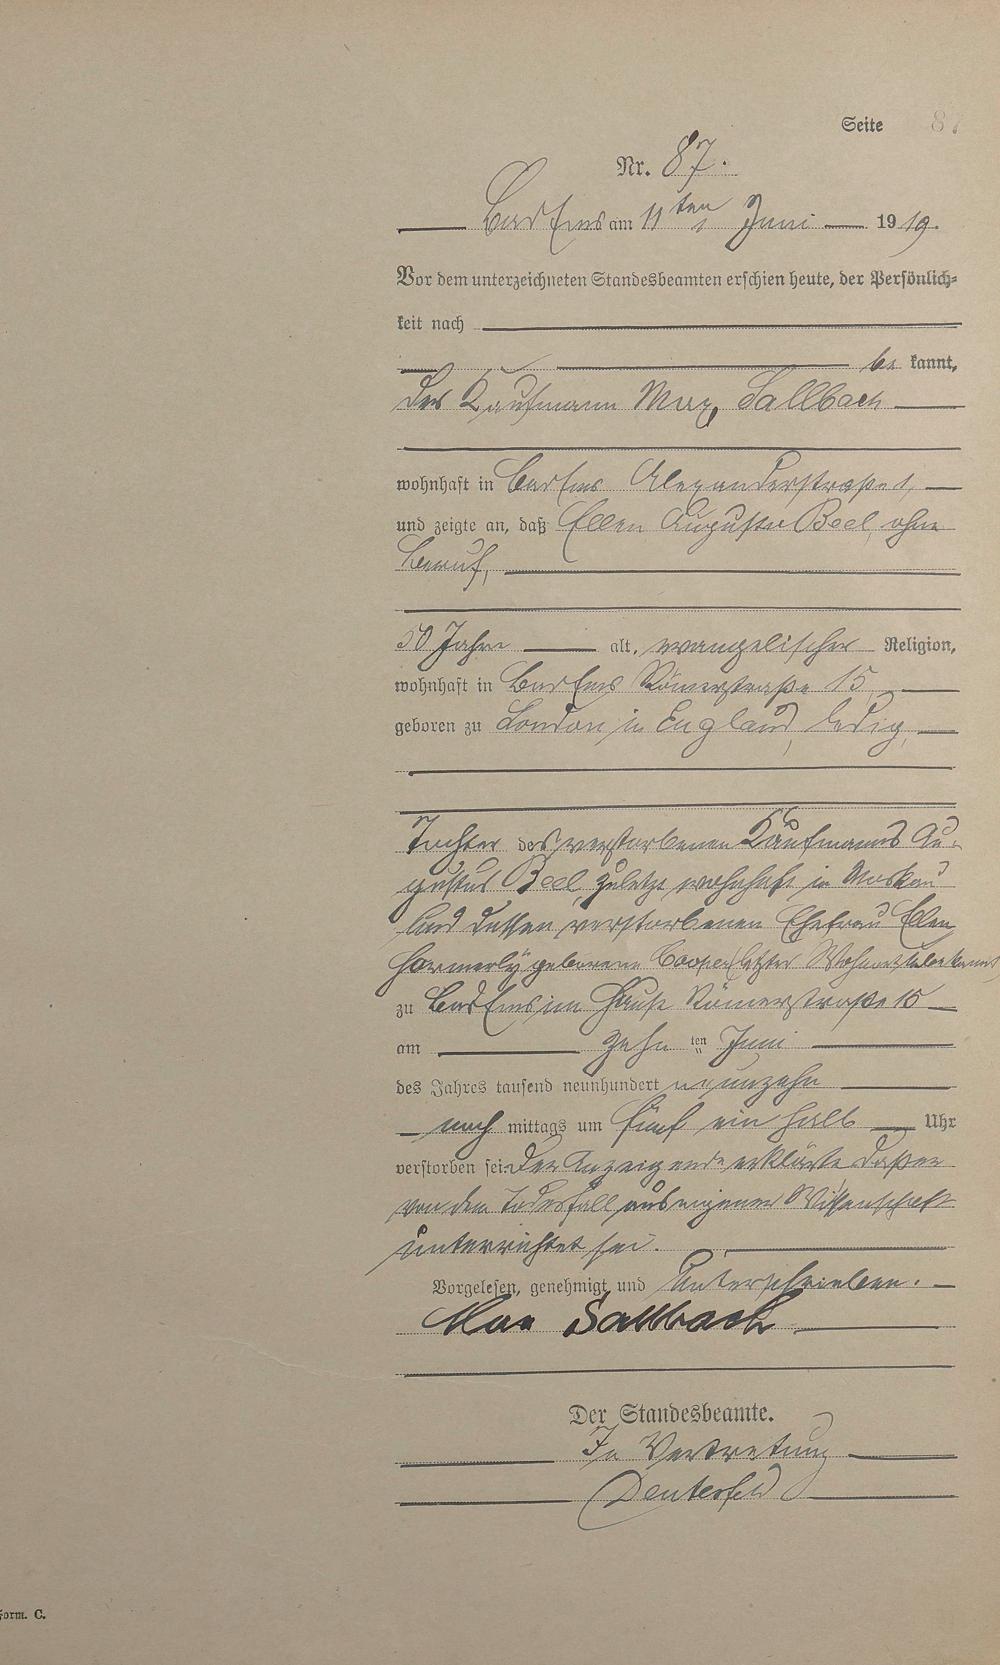 Seite 87
Nr. 87.
Bad Ems am 11ten Juni 1919.
Vor dem unterzeichneten Standesbeamten erschien heute, der Persönlich-
keit nach
be kannt,
der Kaufmann Max Sallbach
wohnhaft in Bad Ems Alexanderstraße 1,
und zeigte an, daß Ellen Auguste Beel, ohne
Beruf,
50 Jahre alt, evangelischer Religion,
wohnhaft in Bad Ems Römerstraße 15,
geboren zu London in England, ledig,
Tochter des verstorbenen Kaufmanns Au-
gustus Beel, zuletzt wohnhaft in Moskau
und dessen verstorbenen Ehefrau Ellen
formerly geborene Cooper (letzter Wohnort unbekannt)
zu Bad Ems im Hause Römerstraße 15
am zehn ten Juni
des Jahres tausend neunhundert neunzehn
nach mittags um fünf ein halb Uhr
verstorben sei. Der Anzeigende erklärte daß er
von dem Todesfall aus eigener Wissenschaft
unterrichtet sei.
Vorgelesen, genehmigt und unterschrieben.
Max Sallbach
Der Standesbeamte.
In Vertretung
Form. C.